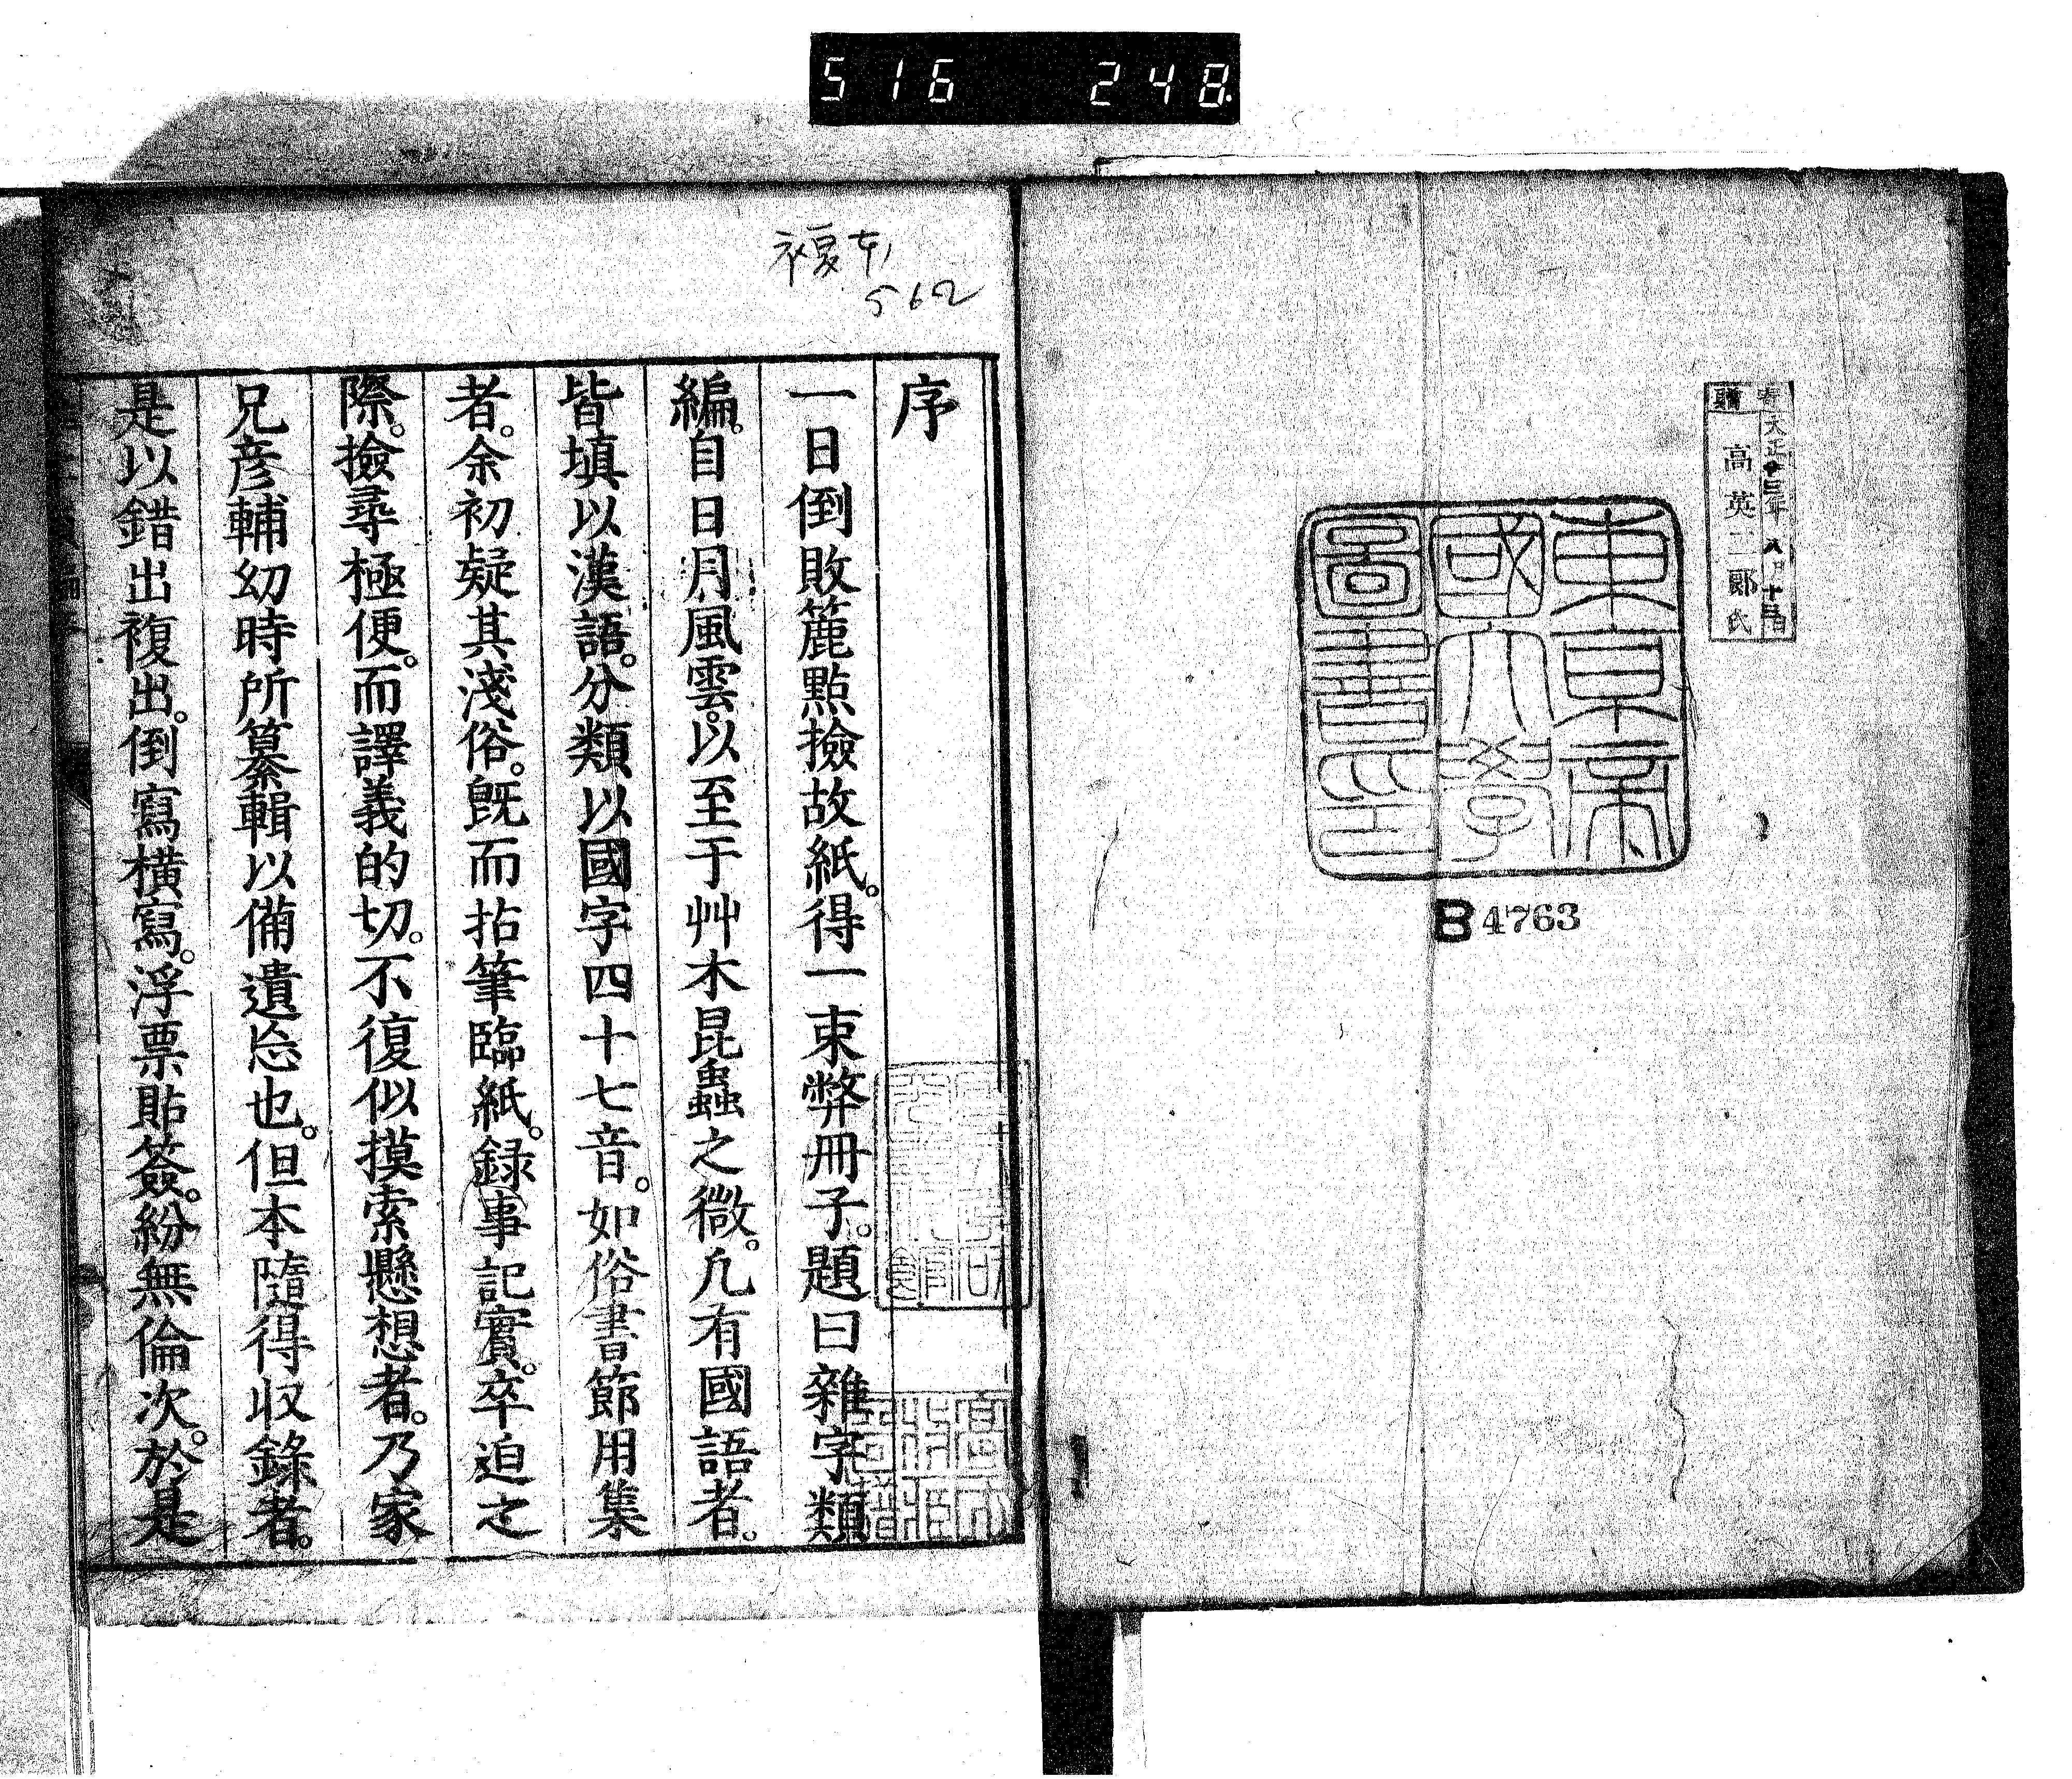 516 248
寄贈
大正十三年八月十三日
高英二郎氏
東京帝
國大學
圖書印
B4763
複本
562
序
一日倒敗簏點撿故紙。得一束弊冊子。題曰雜字類
編。自日月風雲。以至于艸木昆蟲之微。凢有國語者。
皆填以漢語。分類以國字四十七音。如俗書節用集
者。余初疑其淺俗。旣而拈筆臨紙。録事記實。卒迫之
際。撿尋極便。而譯義的切。不復似摸索懸想者。乃家
兄彦輔幼時所纂輯以備遺忘也。但本隨得収錄者。
是以錯出複出。倒寫橫寫。浮票貼簽。紛無倫次。於是